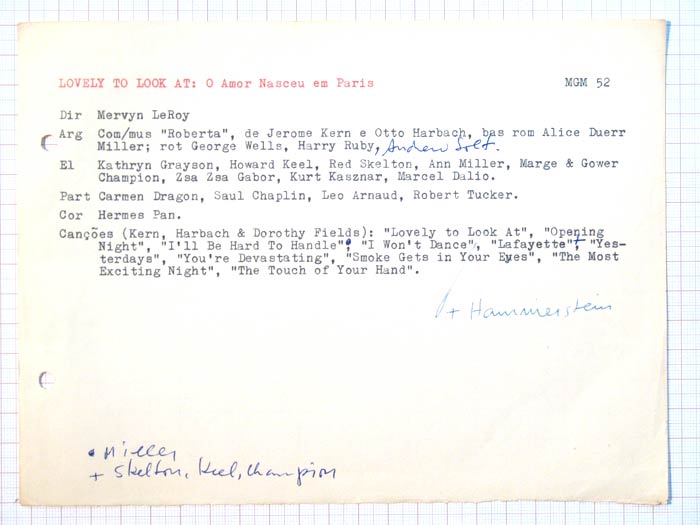 LOVELY TO LOOK AT: O Amor Nasceu em Paris MGM 52
Dir Mervyn LeRoy
Arg Com/mus "Roberta", de Jerome Kern e Otto Harbach, bas rom Alice Duerr
Miller; rot George Wells, Harry Ruby, Andrew Solt.
El Kathryn Grayson, Howard Keel, Red Skelton, Ann Miller, Marge & Gower
Champion, Zsa Zsa Gabor, Kurt Kasznar, Marcel Dalio.
Part Carmen Dragon, Saul Chaplin, Leo Arnaud, Robert Tucker.
Cor Hermes Pan.
Canções (Kern, Harbach & Dorothy Fields): "Lovely to Look At", "Opening
Night", "I'll Be Hard To Handle"•, "I Won't Dance", "Lafayette"+, "Yes-
terdays", "You're Devastating", "Smoke Gets in Your Eyes", "The Most
Exciting Night", "The Touch of Your Hand".
+ Hammerstein
• Miller
+ Skelton, Keel, Champion